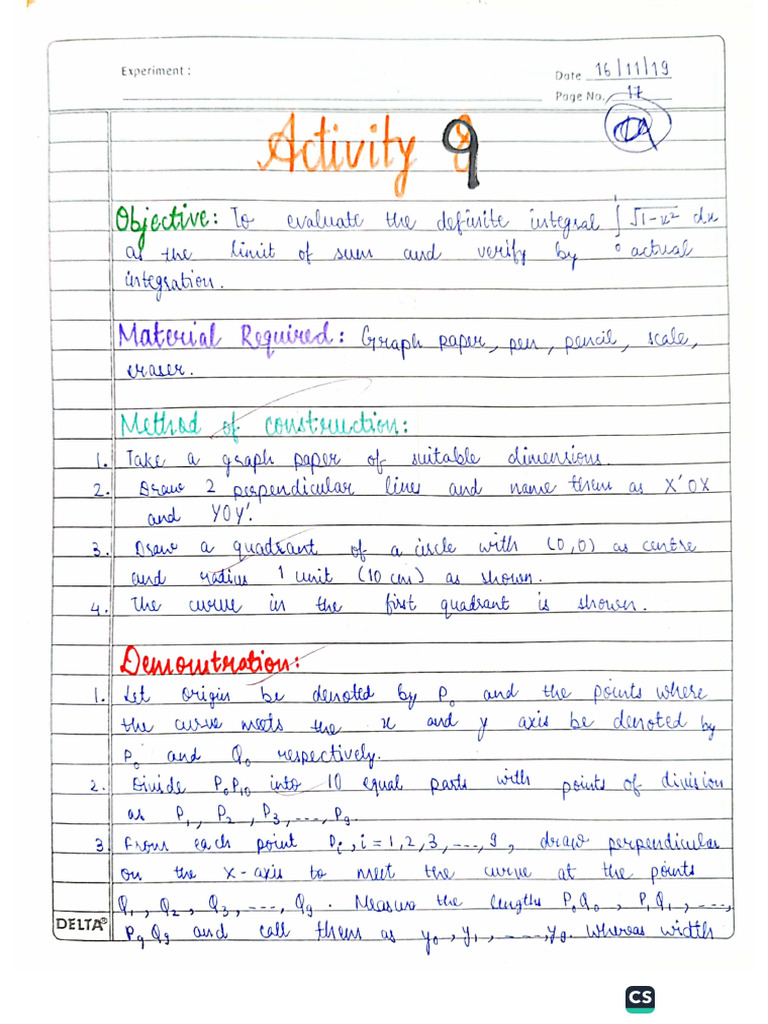 Experiment :
Date 16/11/19
Page No. 17
Activity 9
Objective: To evaluate the definite integral ∫₀¹ √1-x² dx
as the limit of sum and verify by actual
integration.
Material Required: Graph paper, pen, pencil, scale,
eraser.
Method of construction:
1. Take a graph paper of suitable dimensions.
2. Draw 2 perpendicular lines and name them as X'OX
and YOY'.
3. Draw a quadrant of a circle with (0,0) as centre
and radius 1 unit (10 cm) as shown.
4. The curve in the first quadrant is shown.
Demonstration:
1. Let origin be denoted by P₀ and the points where
the curve meets the x and y axis be denoted by
P₀ and Q₀ respectively.
2. Divide P₀P₁₀ into 10 equal parts with points of division
as P₁, P₂, P₃, ---, P₉.
3. From each point Pᵢ, i = 1,2,3, ---, 9, draw perpendicular
on the x-axis to meet the curve at the points
Q₁, Q₂, Q₃, ---, Q₉. Measure the lengths P₀Q₀, P₁Q₁, ---,
P₉Q₉ and call them as y₀, y₁, ---, y₉. whereas width
DELTA®
CS